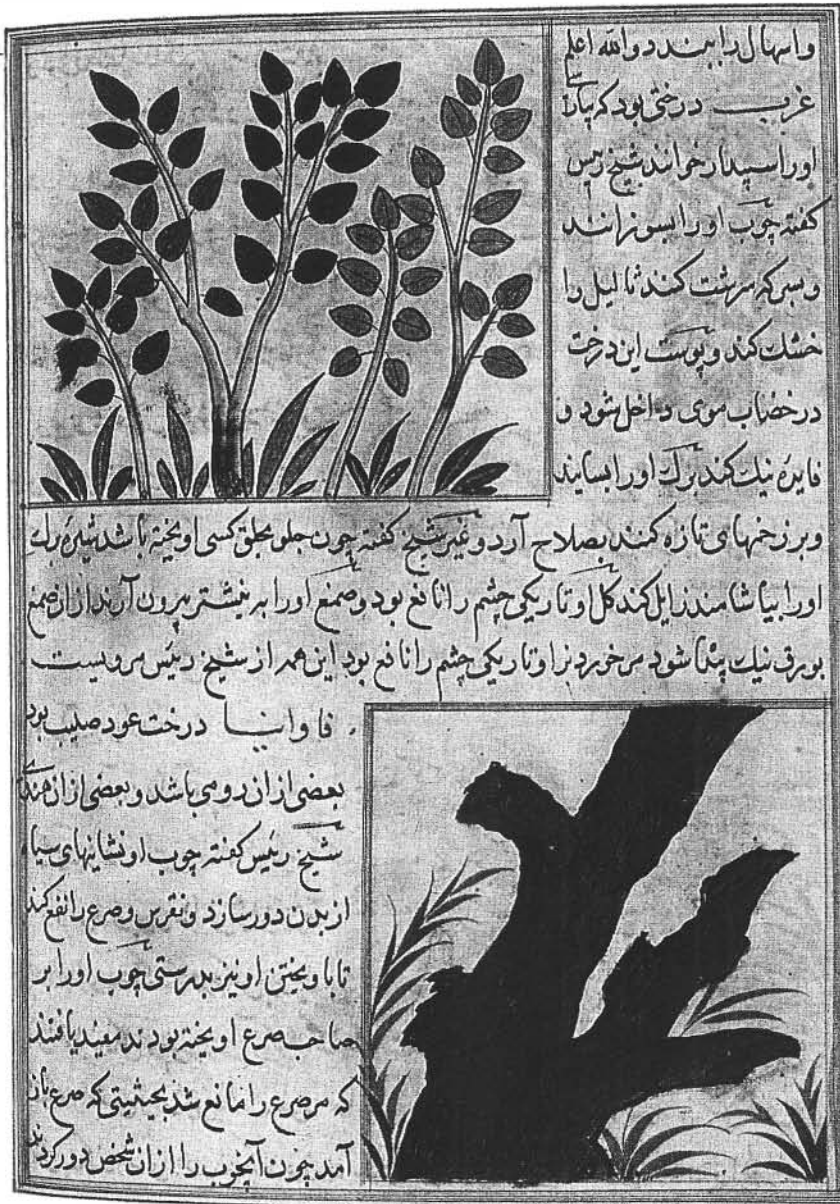 واسهال را ببندد والله اعلم
غرب درختی بود که
اورا سپیدار خوانند شیخ رئیس
کفته چوب اورا بسوزانند
وبسرکه سرشت کنند ثالیل را
خشک کند وپوست این درخت
در خضاب موی داخل شود و
فایده نیک کند برک اورا بسایند
وبرزخمهای تازه کنند بصلاح آرد وغیر شیخ کفته چون جلو بحلق کسی اویخته باشد شیره برک
اورا بیاشامند زایل کند کل او تاریکی چشم را نافع بود وصمغ اورا بر نیشتر بیرون آرند از ان صمغ
بورق نیک شود او تاریکی چشم را نافع بود این همه از شیخ رئیس مرویست
فاوانیا درخت عود صلیب بود
بعضی از ان رومی باشد وبعضی از ان هندی
شیخ رئیس کفته چوب او نشانهای سیاه
از بدن دور سازد ونقرس وصرع را نفع کند
تا باویختن او نیز بدرستی چوب اورا بر
صاحب صرع اویخته بودند مفید یافتند
که مر صرع را مانع شد بحیثیتی که صرع باز
آمد چون آنچوب را از ان شخص دور کردند